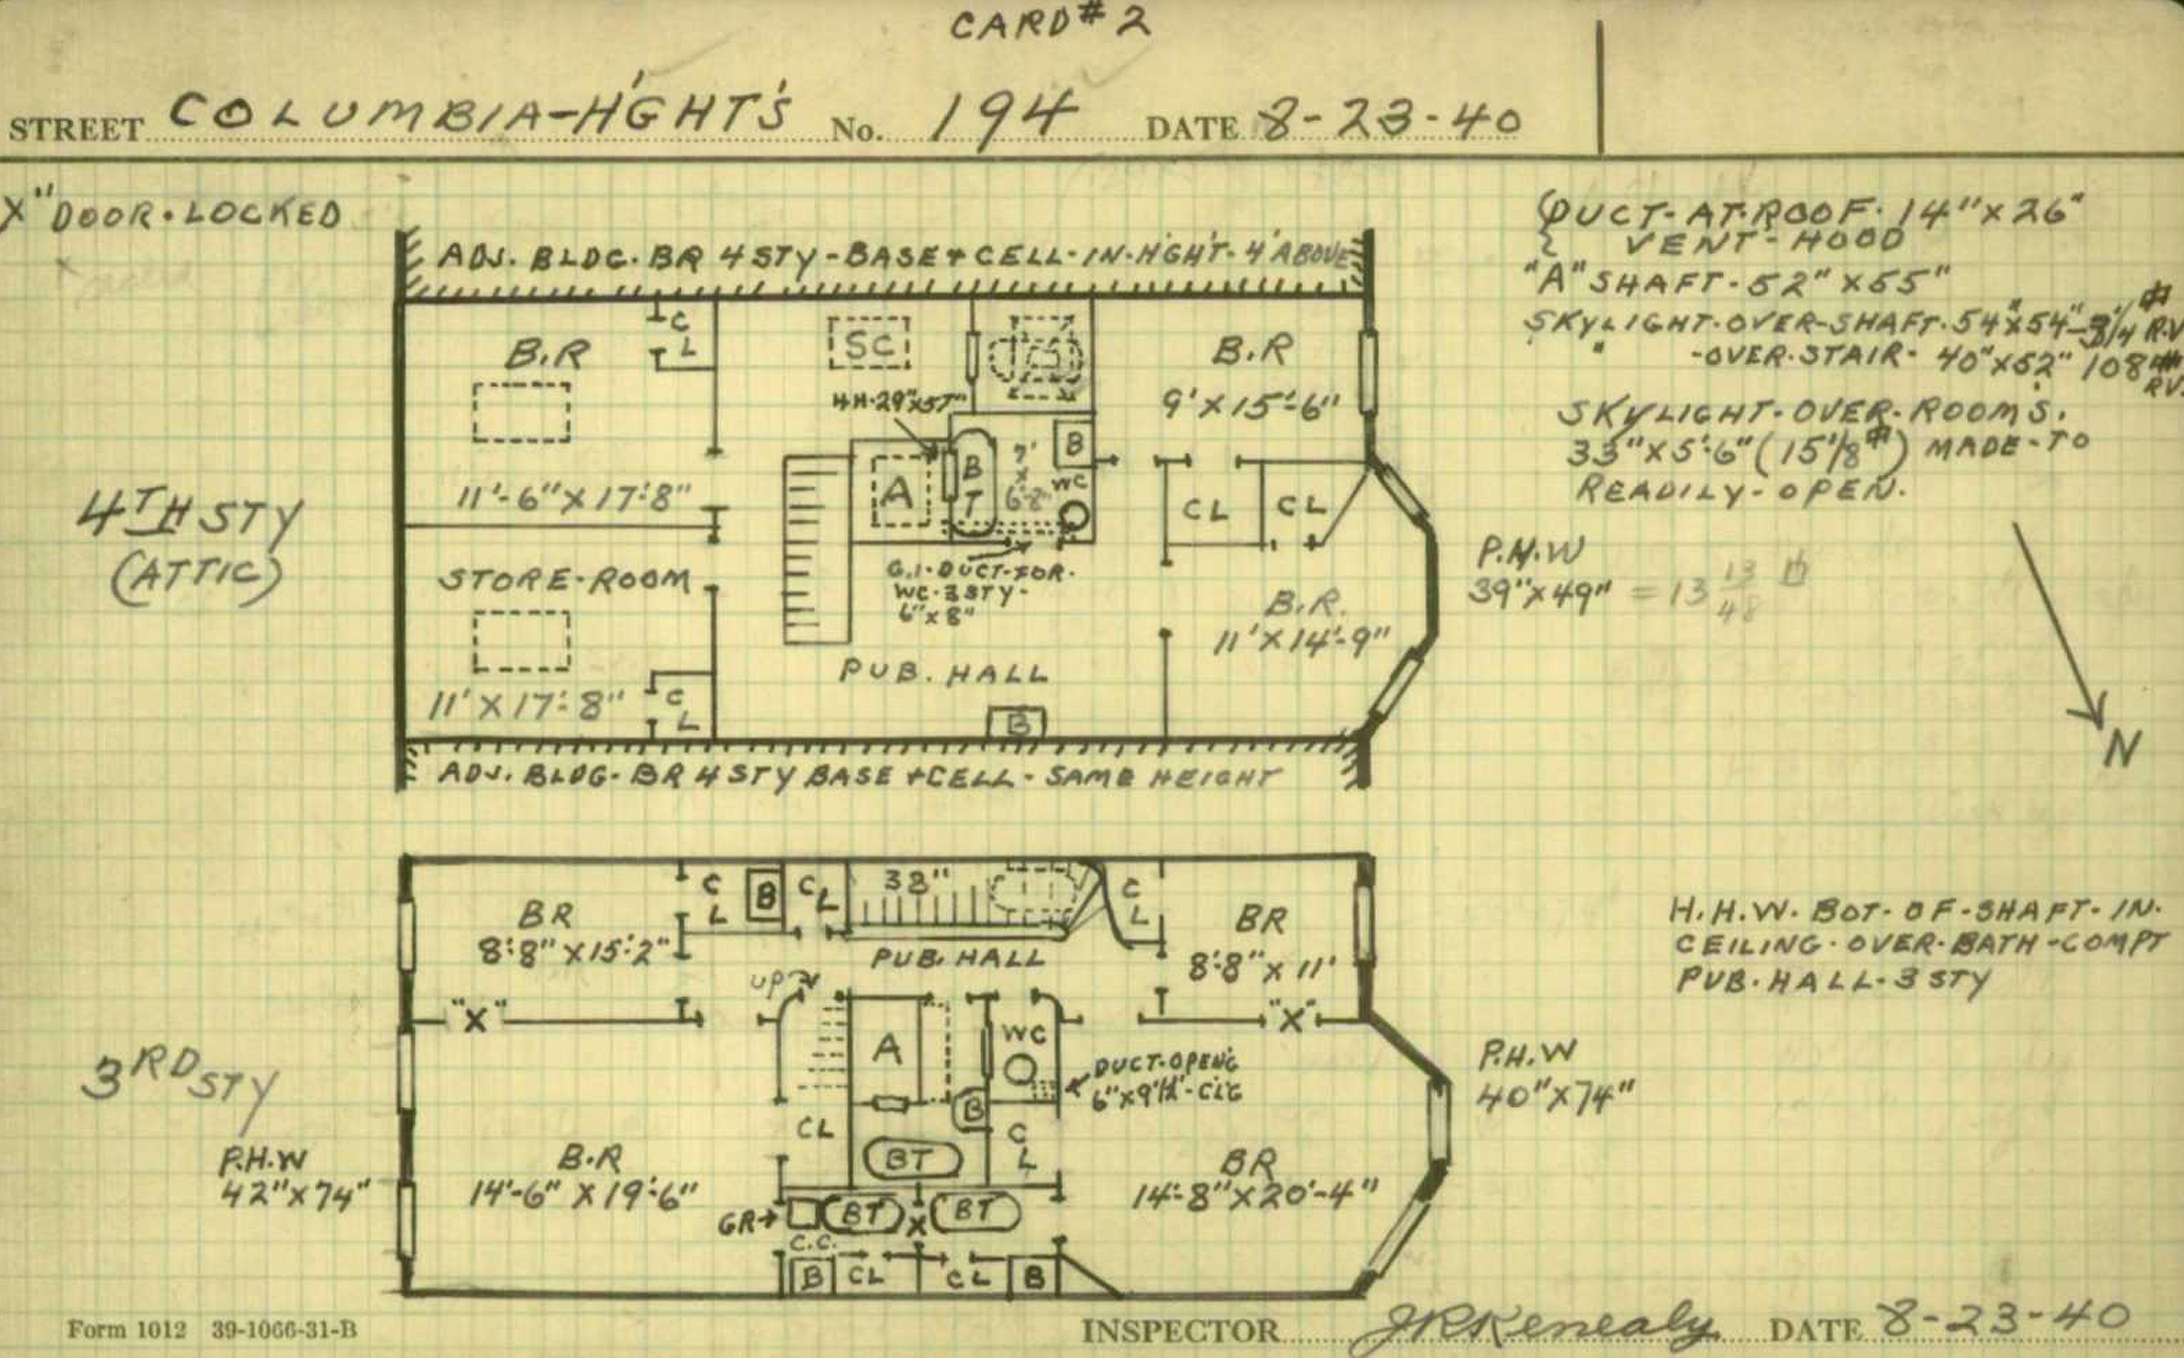 CARD # 2
STREET COLUMBIA-H'GHT'S No. 194 DATE 8-23-40
"X" DOOR.LOCKED
DUCT-AT.ROOF. 14"X26"
VENT-HOOD
"A" SHAFT-52"X65"
SKYLIGHT.OVER-SHAFT.54"X54"-3/4 R.V
" -OVER.STAIR- 40"X52" 108 RV.
SKYLIGHT-OVER-ROOMS.
33"X5'-6" (15 1/8) MADE-TO
READILY-OPEN.
ADJ. BLDG. BR 4 STY-BASE+CELL-IN-H'GHT-4' ABOVE
4TH STY
(ATTIC)
B.R
11'-6"X17'-8"
C
L
SC
H.H.29"X57"
A
B
T
7'
X
6'-8"
B
WC
B.R
9'X15'-6"
CL
CL
G.I-DUCT-FOR.
WC-3STY-
6"X8"
STORE-ROOM
11'X17'-8"
C
L
PUB. HALL
B
B.R.
11'X14'-9"
P.H.W
39"X49" = 13 13/48
N
ADJ. BLDG- BR 4 STY BASE +CELL- SAME HEIGHT
3RD STY
BR
8'-8"X15'-2"
C
L
B
C
L
38"
C
L
BR
8'-8"X11'
PUB. HALL
UP
"X"
"X"
A
WC
DUCT-OPEN'G
6"X9½"-CL'G
CL
B
C
L
BT
H.H.W. BOT-OF-SHAFT-IN-
CEILING-OVER-BATH-COMPT
PUB.HALL-3 STY
P.H.W
40"X74"
P.H.W
42"X74"
B.R
14'-6"X19'-6"
BR
14'-8"X20'-4"
GR→
BT
X
BT
C.C.
B
CL
CL
B
Form 1012 39-1066-31-B
INSPECTOR JRKenealy DATE 8-23-40